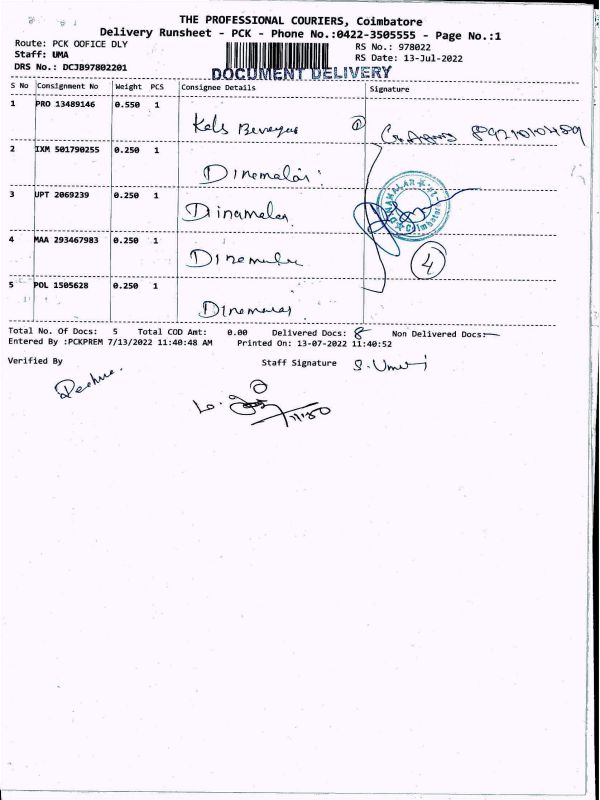 THE PROFESSIONAL COURIERS, Coimbatore
Delivery Runsheet - PCK - Phone No.:0422-3505555 - Page No.:1
Route: PCK OOFICE DLY
RS No.: 978022
Staff: UMA
RS Date: 13-Jul-2022
DRS No.: DCJB97802201
DOCUMENT DELIVERY
S No Consignment No Weight PCS Consignee Details Signature
1 PRO 13489146 0.550 1
Kals 1
2 IXM 501790255 0.250 1
Dinemalai
3 UPT 2069239 0.250 1
Dinamalar
4 MAA 293467983 0.250 1
4
5 POL 1505628 0.250 1
Total No. Of Docs: 5 Total COD Amt: 0.00 Delivered Docs: Non Delivered Docs:
Entered By :PCKPREM 7/13/2022 11:40:48 AM Printed On: 13-07-2022 11:40:52
Verified By Staff Signature